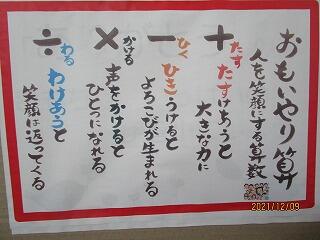 おもいやり算
人を笑顔にする算数
＋
たす
たすけあうと
大きな力に
－
ひく
ひきうけると
よろこびが生まれる
×
かける
声をかけると
ひとつになれる
÷
わる
わけあうと
笑顔は返ってくる
2021/12/09